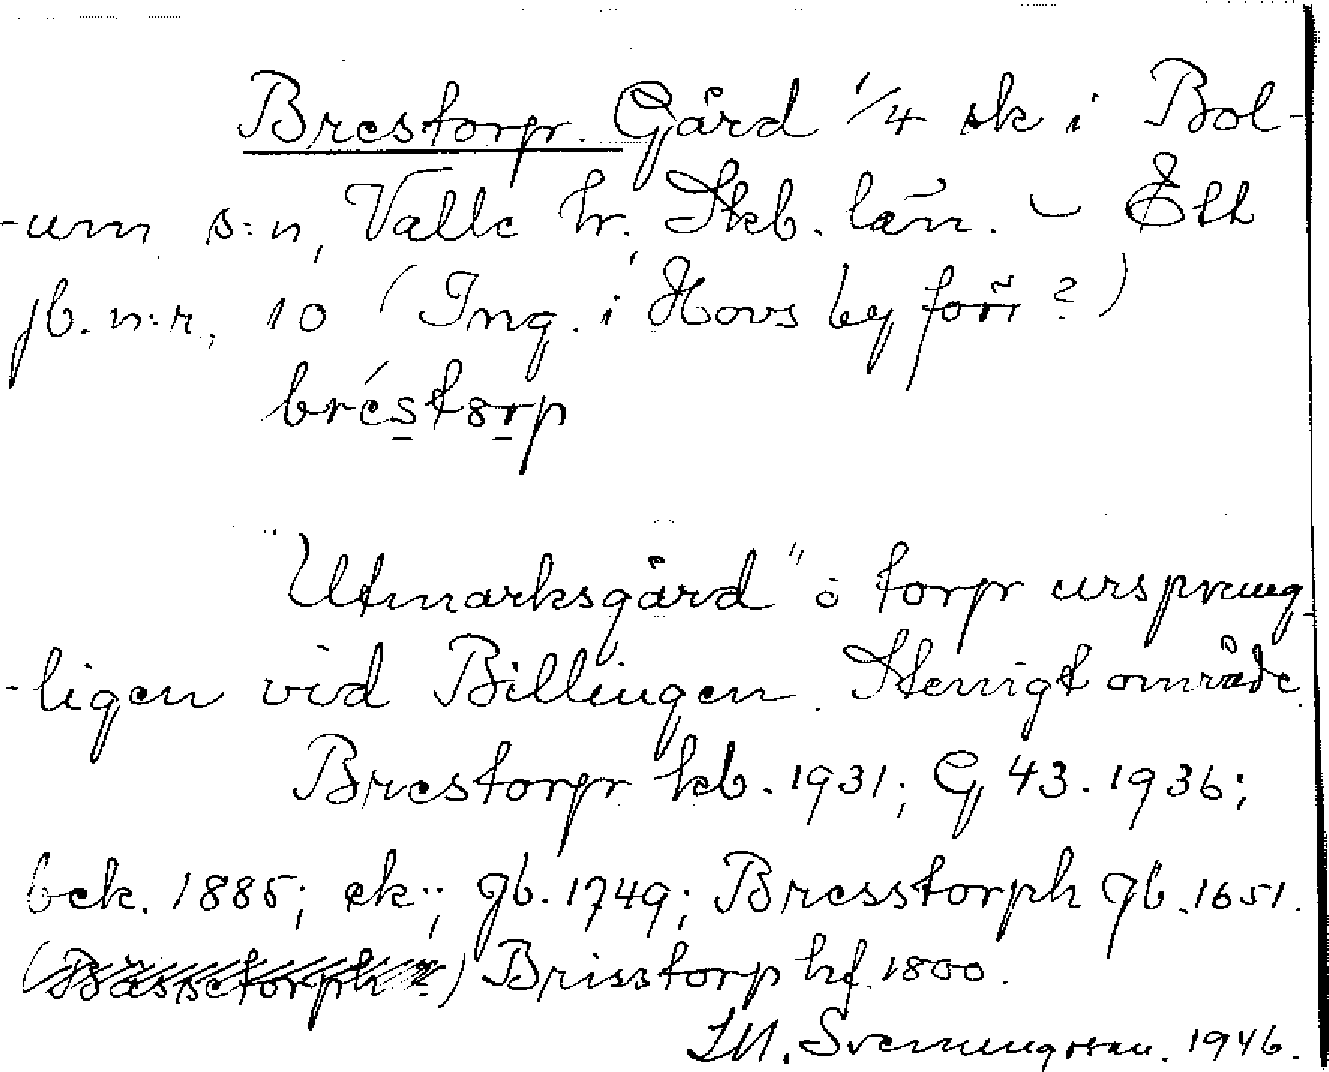 Brestorp. Gård 1/4 sk i Bol-
-um s:n, Valle hr. Skb. län. – Ett
jb. n:r. 10 (Ing. i Hovs by förr?)
bréstorp
"Utmarksgård" o torp ursprung-
-ligen vid Billingen. Stenigt område.
Brestorp kb. 1931; G, 43. 1936;
bek. 1885; ek.; Jb. 1749; Bresstorph Jb. 1651.
Brisstorp hf. 1800.
Sveningsson. 1946.